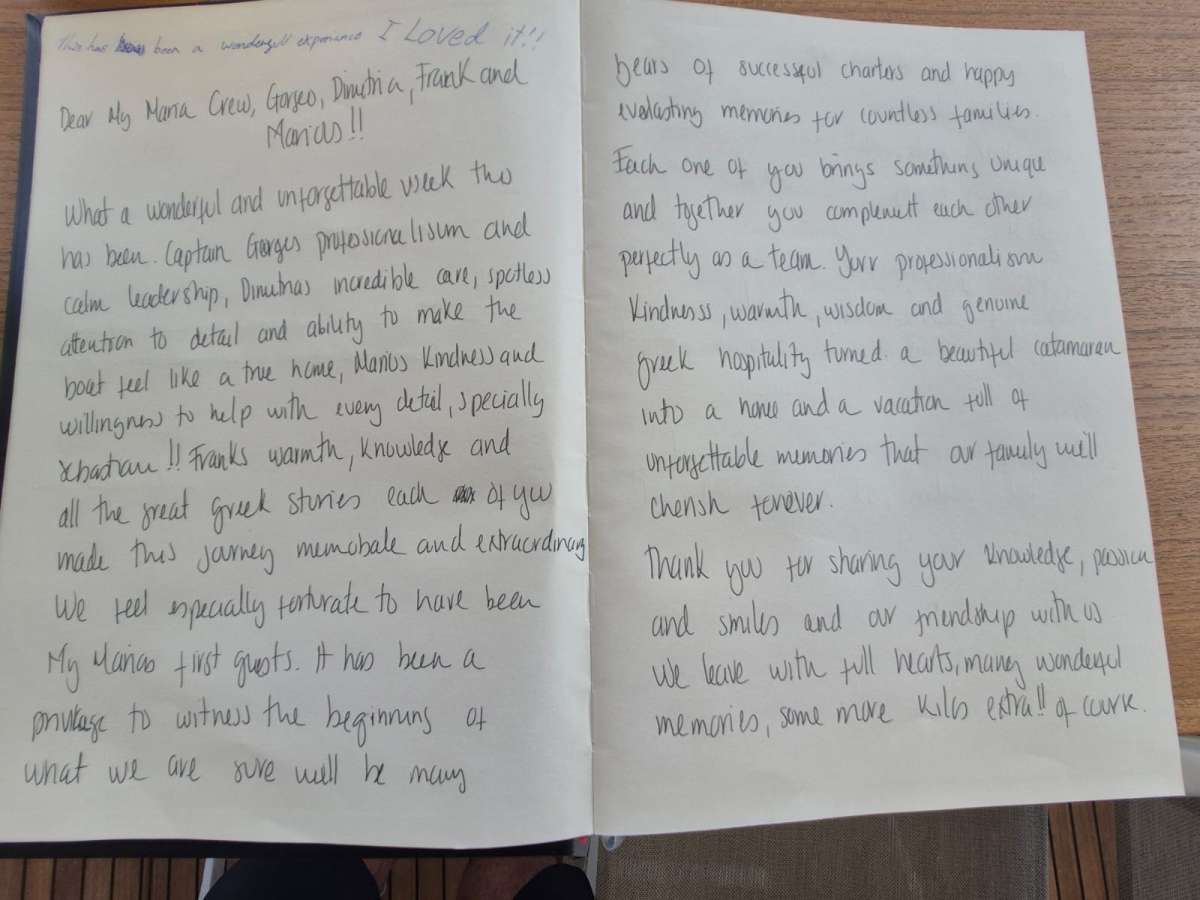 This has been a wonderfull experience I Loved it!!
Dear My Maria Crew, Gorgeo, Dimitria, Frank and
Marios!!
What a wonderful and unforgettable week this
has been. Captain Gorges professionalisum and
calm leadership, Dimitrias incredible care, spotless
attention to detail and ability to make the
boat feel like a true home, Marios Kindness and
willingness to help with every detail, specially
sebastian!! Franks warmth, Knowledge and
all the great greek stories each of you
made this journey memobale and extraordinary
We feel especially fortunate to have been
My Marias first guests. It has been a
privilege to witness the beginning of
what we are sure will be many
years of successful charters and happy
everlasting memories for countless families.
Each one of you brings something unique
and together you complement each other
perfectly as a team. Your professionalism
Kindness, warmth, wisdom and genuine
greek hospitality turned a beautiful catamaran
into a home and a vacation full of
unforgettable memories that our family will
cherish forever.
Thank you for sharing your Knowledge, passion
and smiles and our friendship with us
We leave with full hearts, many wonderful
memories, some more kilos extra!! of course.